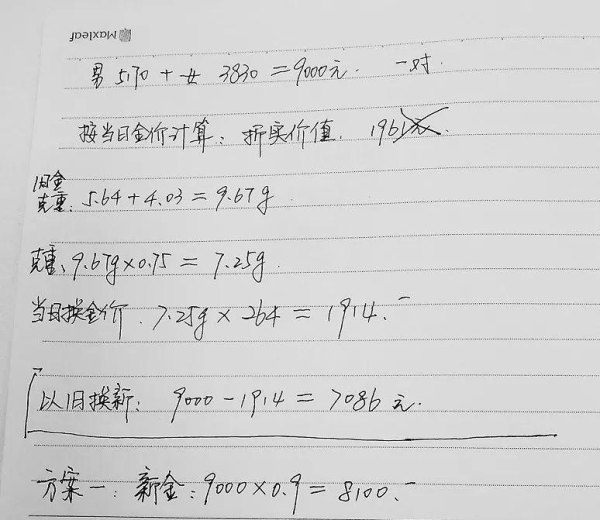 Maxleaf
男 5170 + 女 3830 = 9000元. 一对.
按当日金价计算: 折实价值. 196
旧金
克重: 5.64 + 4.03 = 9.67g
克重: 9.67g×0.75 = 7.25g.
当日换金价. 7.25g × 264 = 1914.-
以旧换新: 9000 - 1914 = 7086元.
方案一: 新金: 9000×0.9 = 8100.-